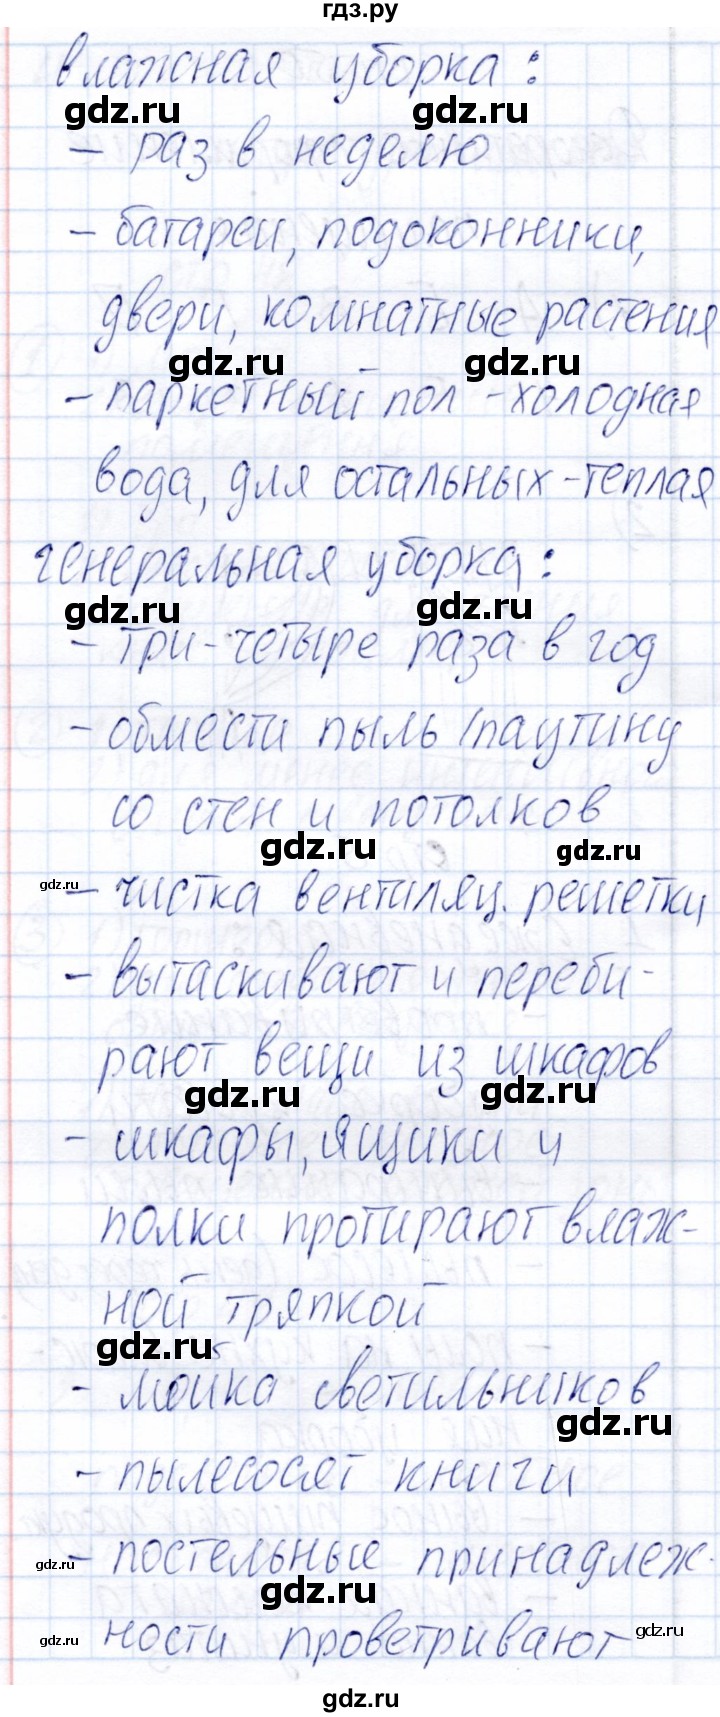 гдз.ру
влажная уборка:
gdz.ru gdz.ru
- раз в неделю
- батареи, подоконники,
двери, комнатные растения
gdz.ru gdz.ru
- паркетный пол - холодная
вода, для остальных - теплая
генеральная уборка:
gdz.ru gdz.ru
- три-четыре раза в год
- обмести пыль/паутину
со стен и потолков
gdz.ru gdz.ru
gdz.ru
- чистка вентиляц. решетки
- вытаскивают и переби-
рают вещи из шкафов
gdz.ru gdz.ru
- шкафы, ящики и
полки протирают влаж-
ной тряпкой
gdz.ru
- мойка светильников
gdz.ru
- пылесосят книги
gdz.ru
- постельные принадлеж-
gdz.ru
ности проветривают
gdz.ru gdz.ru
gdz.ru